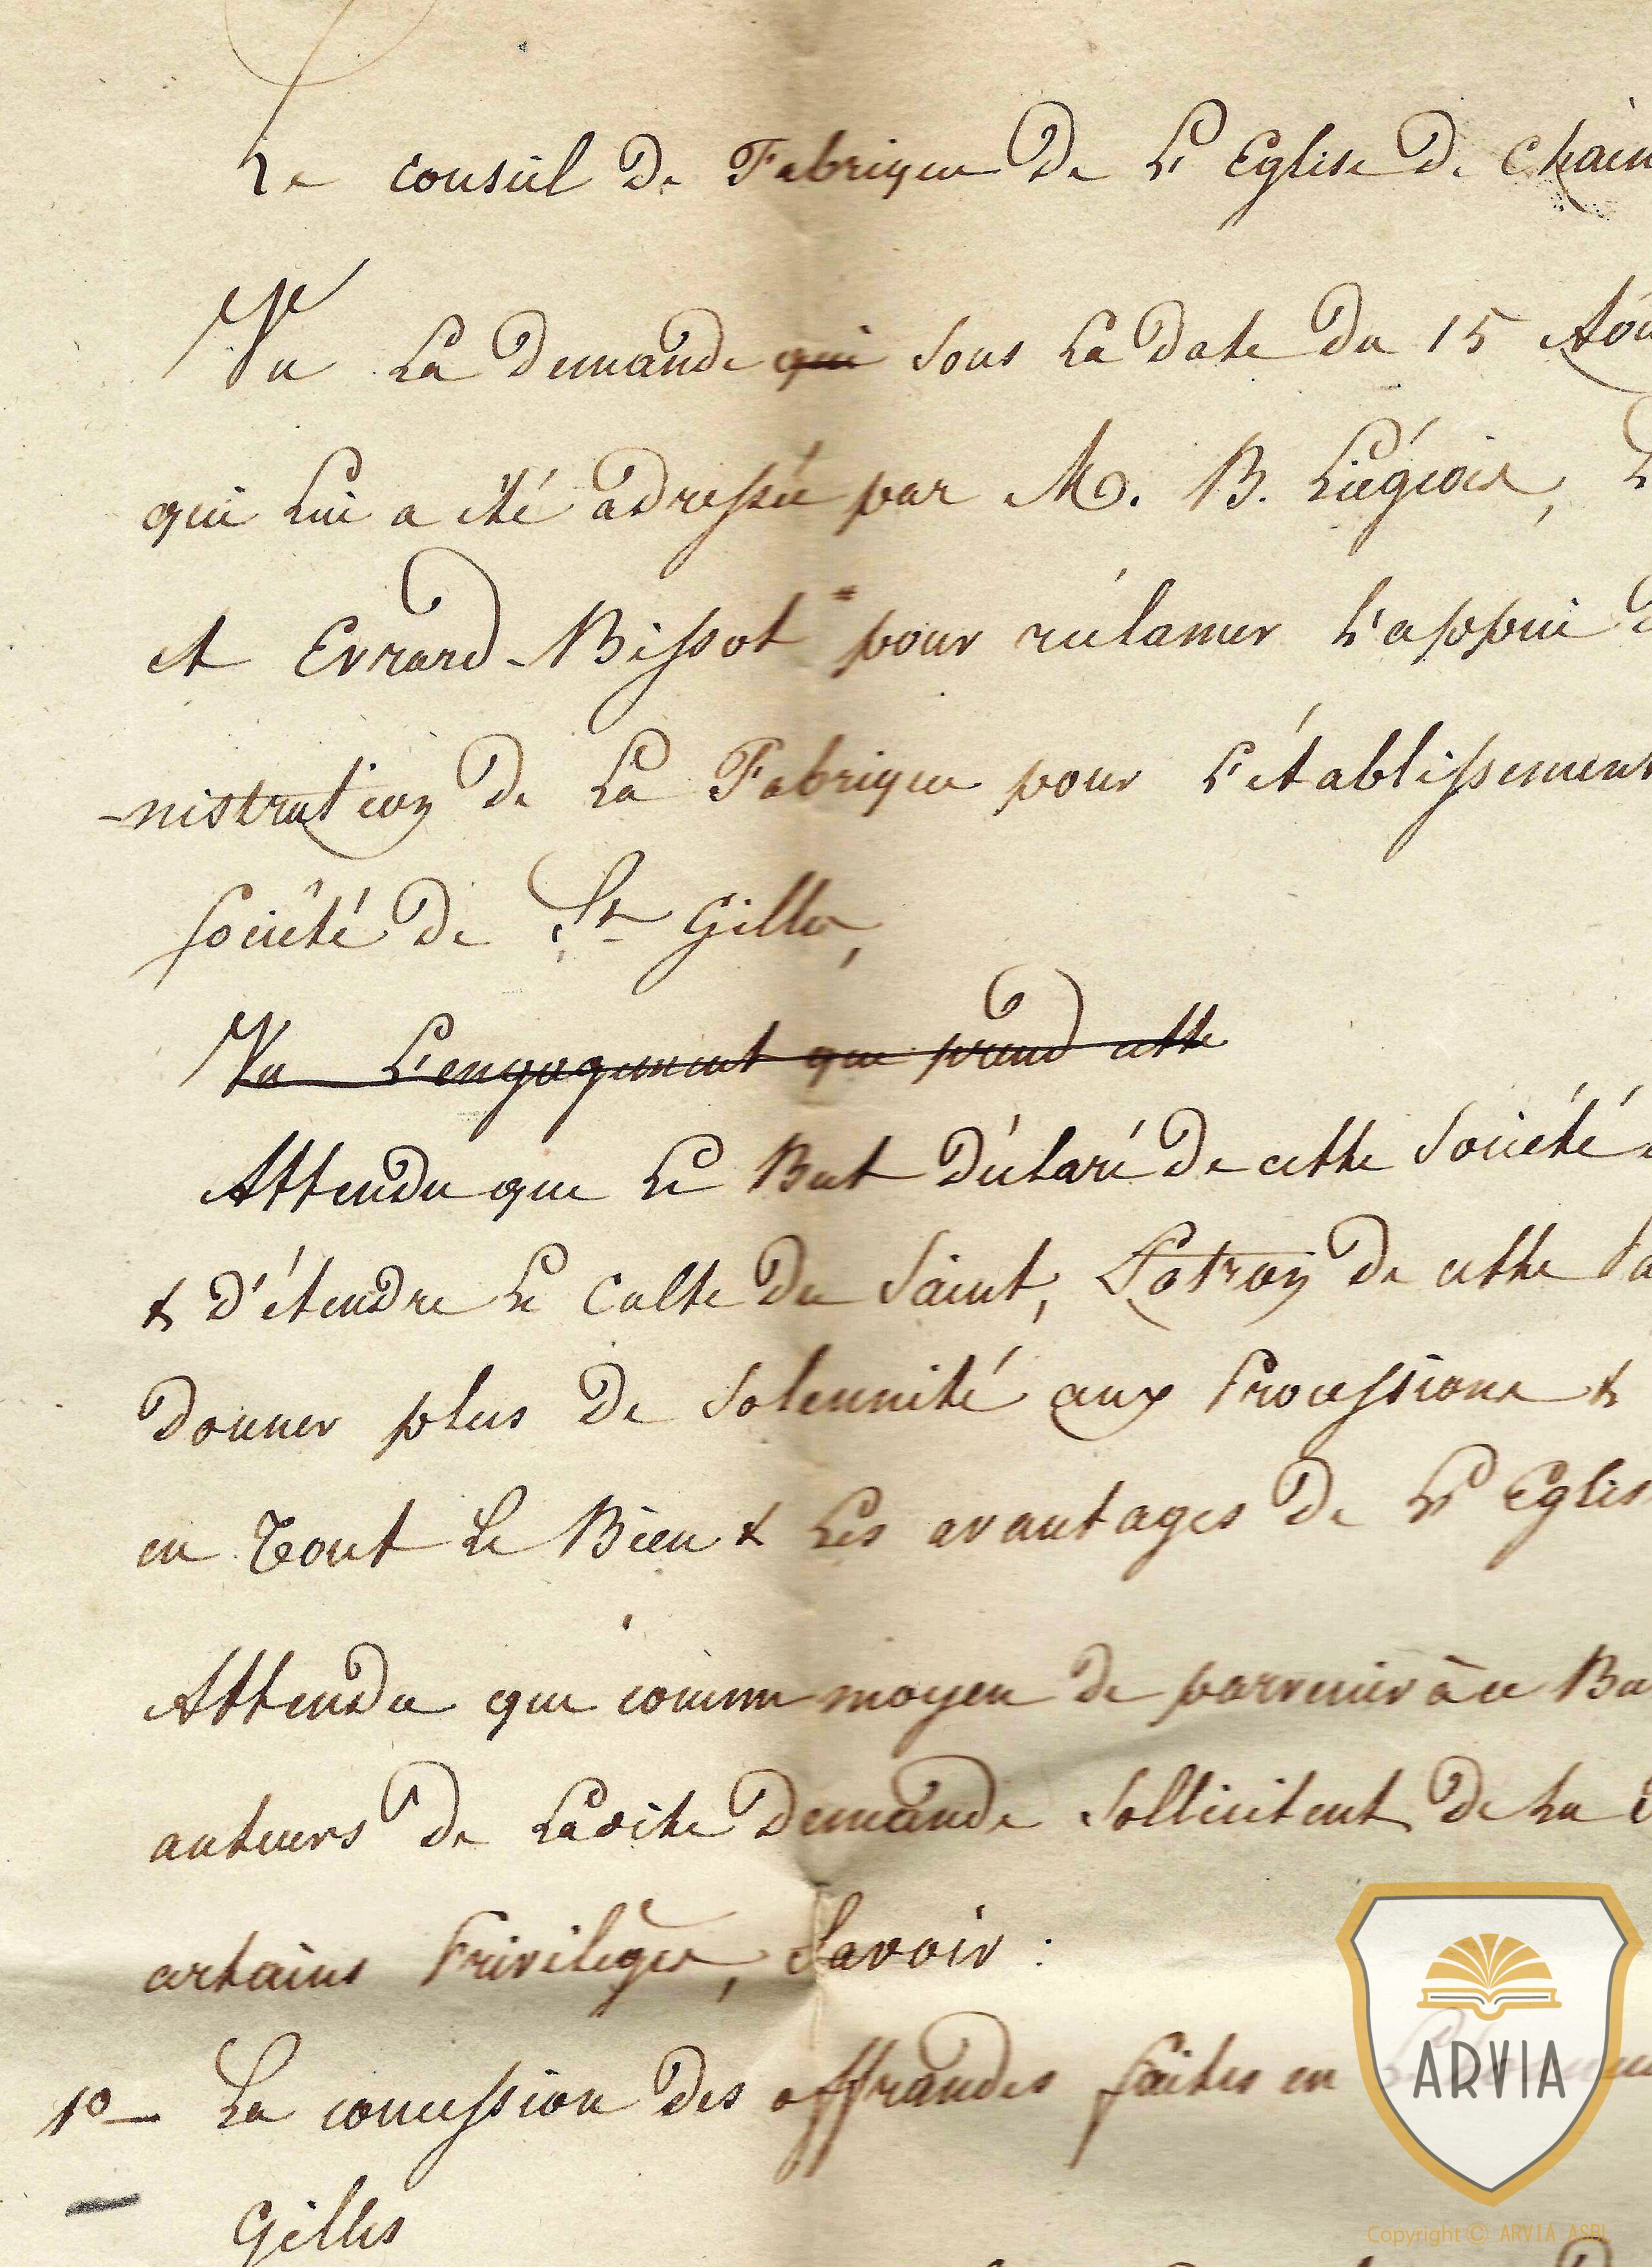 Le conseil de Fabrique de L'Eglise de Chain
Vu La Demande qui sous La Date du 15 Aôu
qui Lui a été adressée par M. B. Liégeois, D
et Evrard-Bissot * pour réclamer L'appui d
-nistration de La Fabrique pour L'établissement
société de St Gilles,
Vu L'engagement que prend cette
Attendu que Le But Déclaré de cette Société
& D'étendre Le Culte du Saint, Patron de cette Pa
Donner plus de Solennité aux Processions &
en Tout Le Bien & Les avantages de L'Eglis
Attendu que comme moyen de parvenir à ce Bu
auteurs de Ladite Demande Sollicitent de La
certains Privilèges, Savoir :
1° La concession des offrandes faites en
Gilles
ARVIA
Copyright © ARVIA ASBL